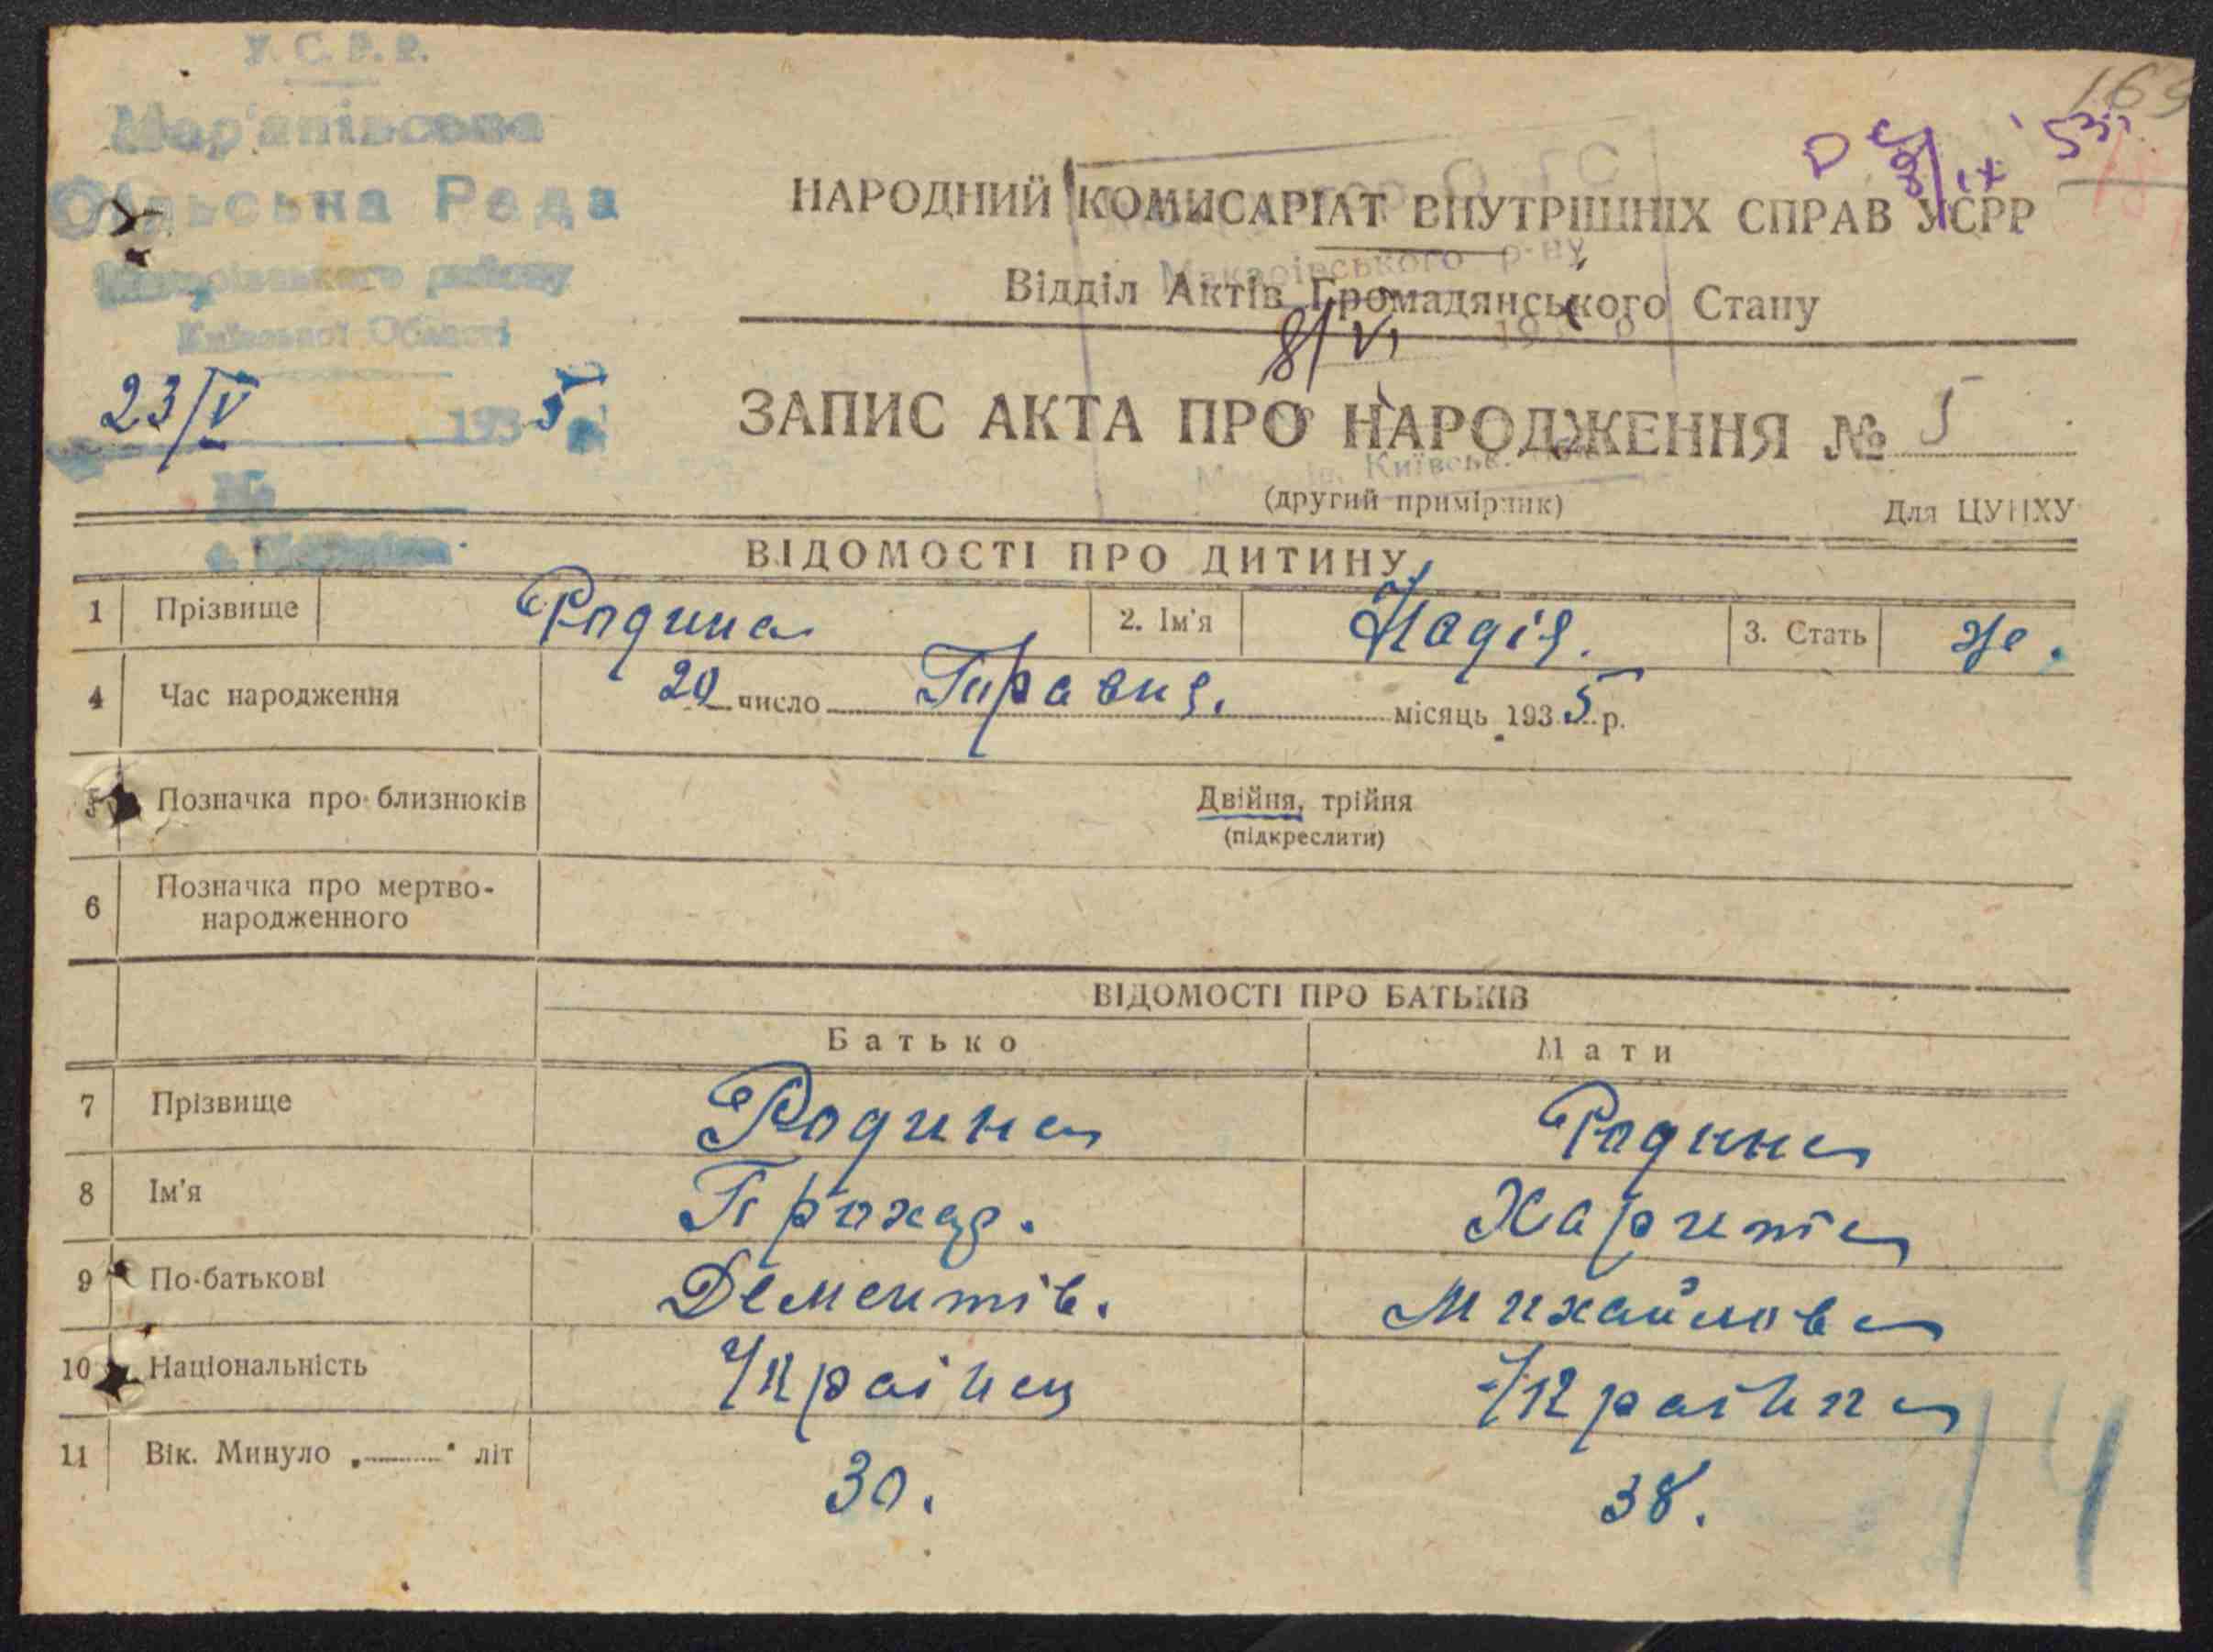 У.С.Р.Р.
Мар'янівська
Сільська Рада
Макарівського району
Київської Області
23/V 1935
№
169
НАРОДНИЙ КОМИСАРІАТ ВНУТРІШНІХ СПРАВ УСРР
Макарівського р-ну
Відділ Актів Громадянського Стану
8/VI 193
ЗАПИС АКТА ПРО НАРОДЖЕННЯ № 5
Київськ.
(другий примірник) Для ЦУНХУ
ВІДОМОСТІ ПРО ДИТИНУ
1 Прізвище Родина 2. Ім'я Надія. 3. Стать же.
4 Час народження 20 число Травня. місяць 1935 р.
5 Позначка про близнюків Двійня, трійня
(підкреслити)
6 Позначка про мертво-
народженного
ВІДОМОСТІ ПРО БАТЬКІВ
Батько Мати
7 Прізвище Родина Родина
8 Ім'я Прохар. Харита
9 По-батькові Дементів. Михайлова
10 Національність Українец Українка
11 Вік. Минуло „ " літ 30. 38.
14